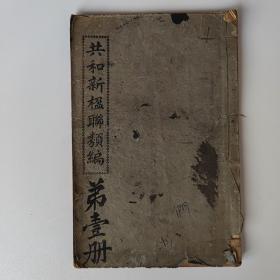 共和新楹聯類編
弟壹册